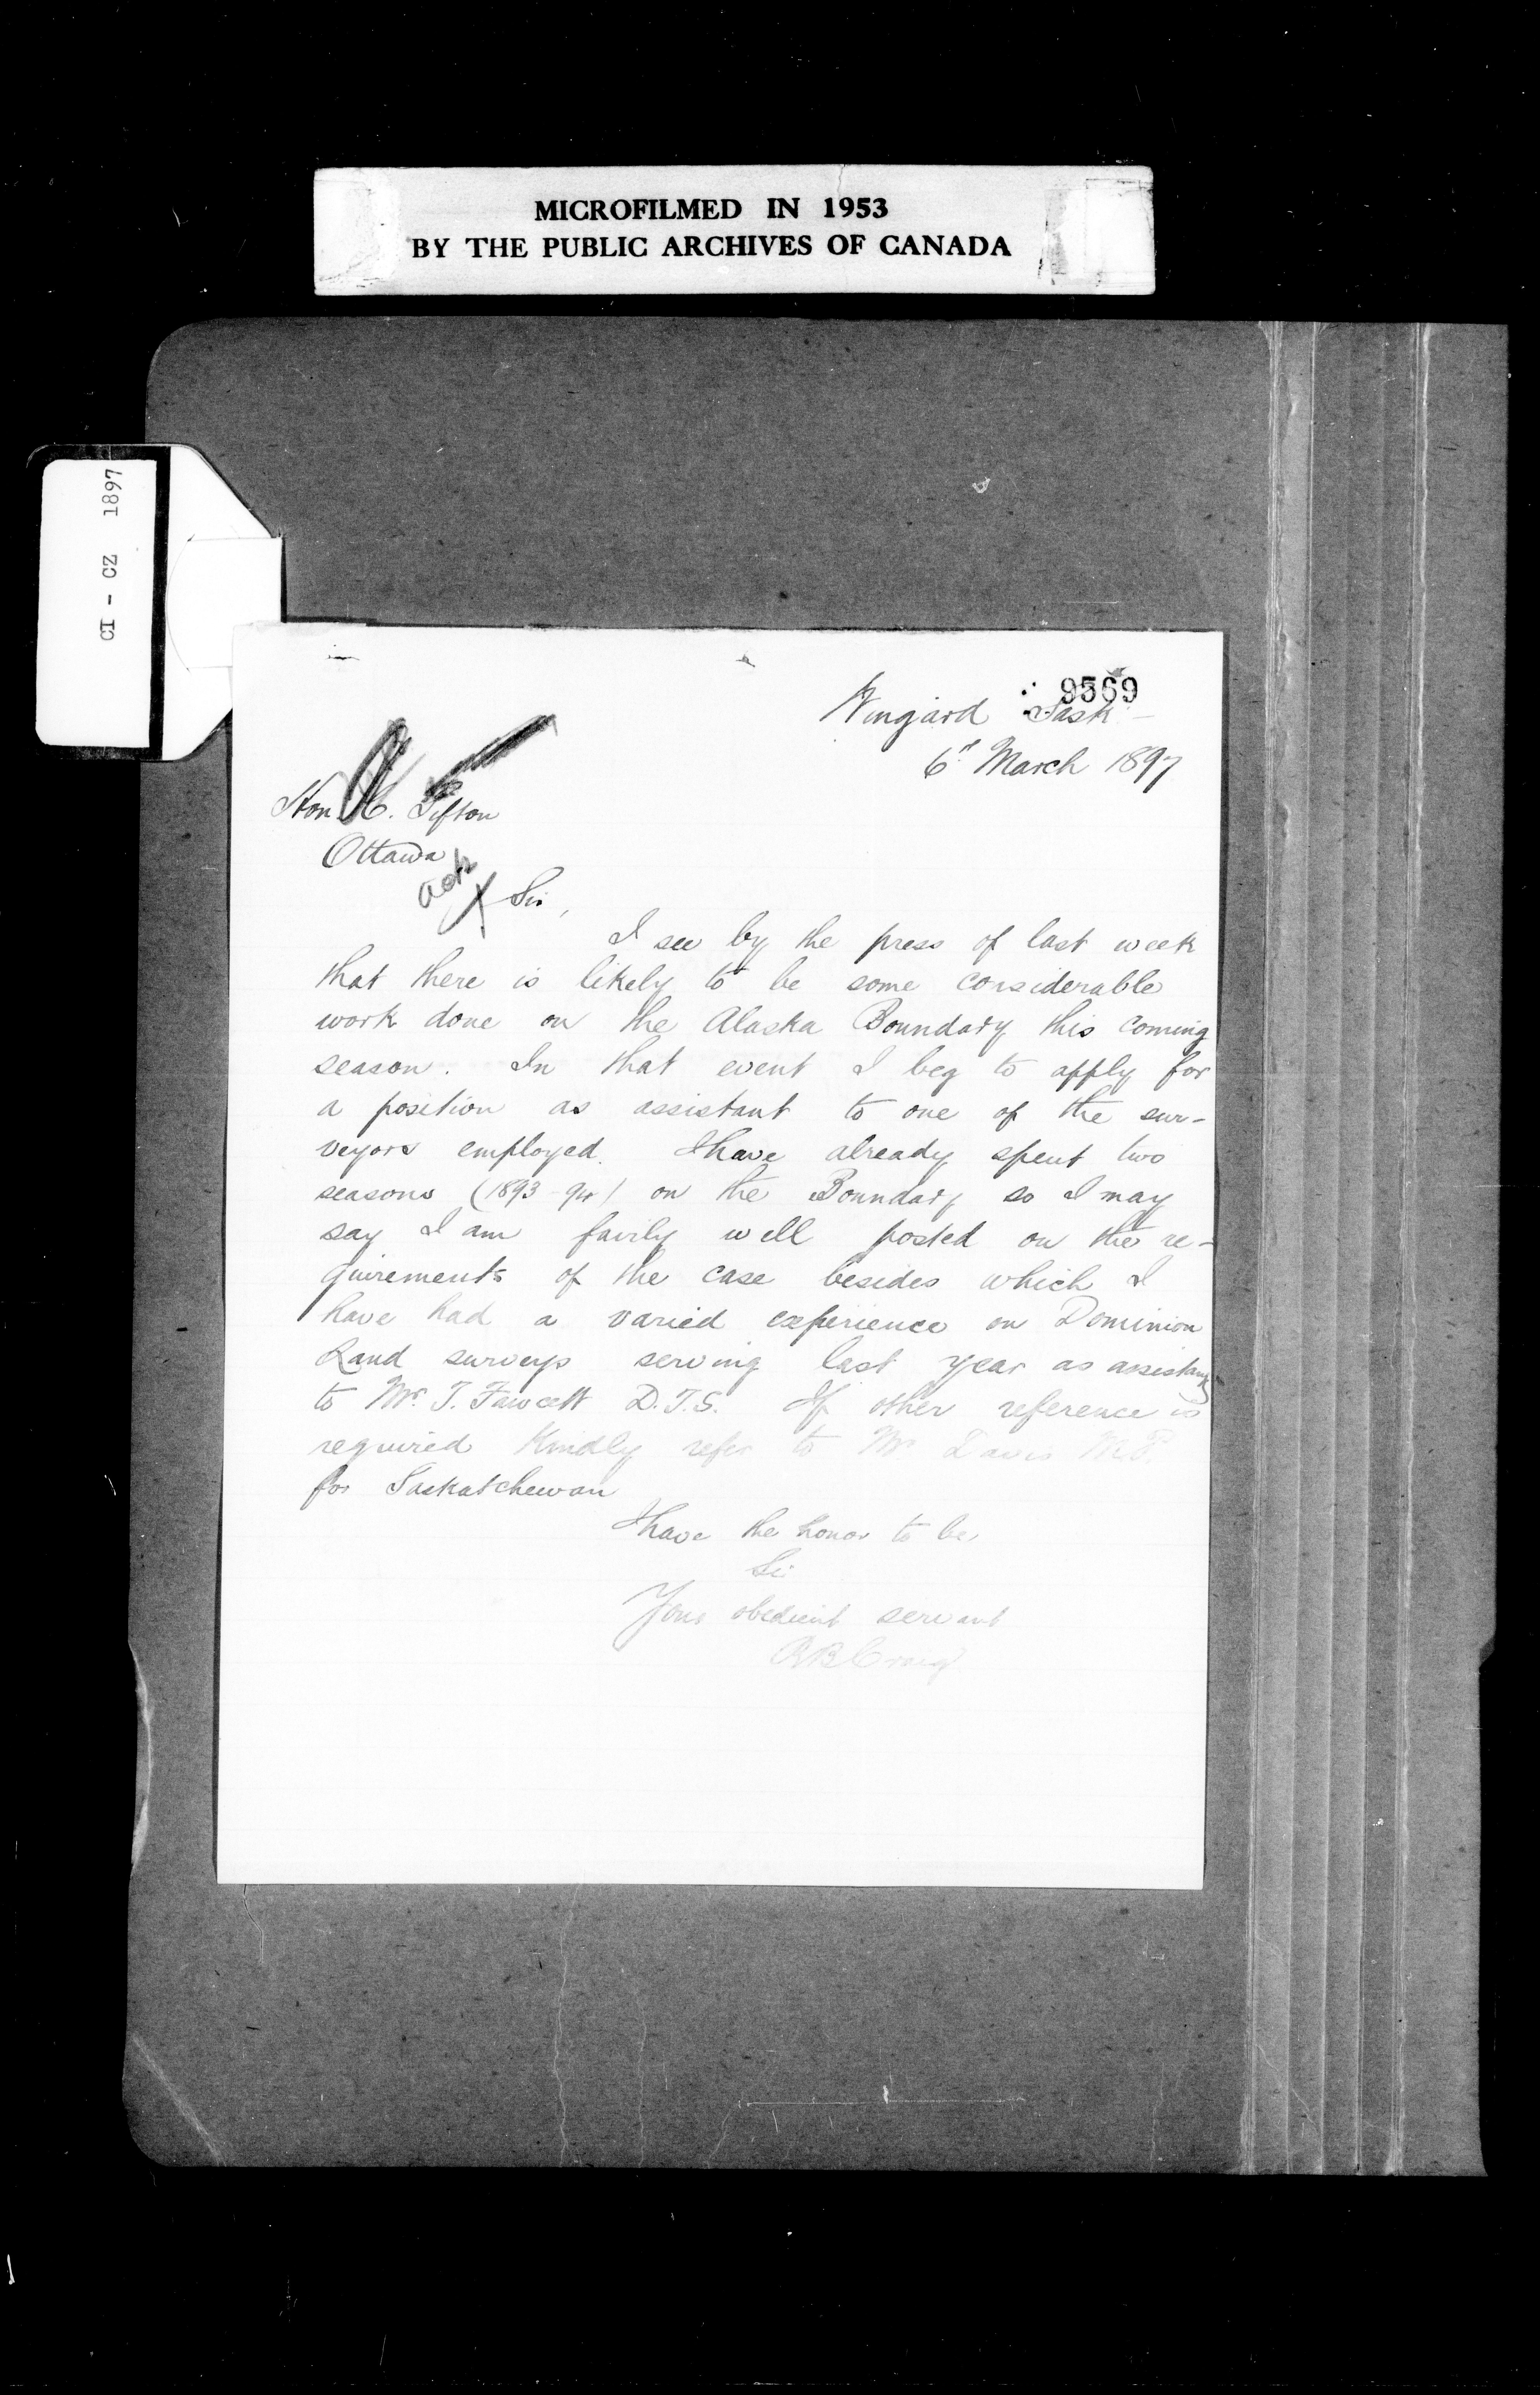 MICROFILMED IN 1953
BY THE PUBLIC ARCHIVES OF CANADA
CI - CZ 1897
9569
Wingard Sask -
6th March 1897
Hon. C. Sifton
Ottawa
ack
Sir,
I see by the press of last week
that there is likely to be some considerable
work done on the Alaska Boundary this coming
season. In that event I beg to apply for
a position as assistant to one of the sur-
veyors employed. I have already spent two
seasons (1893-94) on the Boundary so I may
say I am fairly well posted on the re-
quirements of the case besides which I
have had a varied experience on Dominion
Land surveys serving last year as assistant
to Mr. T. Fawcett D.T.S. If other reference is
required Kindly refer to Mr Davis M.P.
for Saskatchewan
I have the honor to be,
Sir
Your obedient servant
Craig